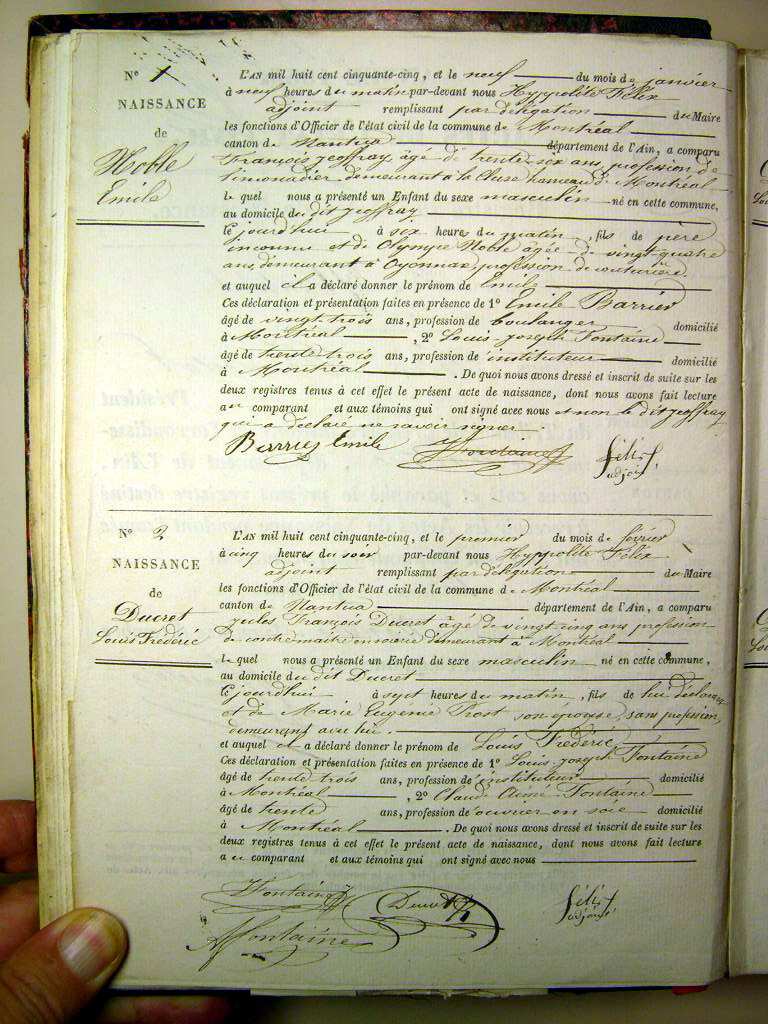 N° 1
NAISSANCE
de
Noble
Emile
L'AN mil huit cent cinquante-cinq, et le neuf du mois de janvier
à neuf heures du matin par-devant nous Hyppolite Félix
adjoint remplissant par délégation du Maire
les fonctions d'Officier de l'état civil de la commune de Montréal
canton de Nantua département de l'Ain, a comparu
François Geoffray âgé de trente six ans, profession de
limonadier demeurant à la Cluse hameau de Montréal
lequel nous a présenté un Enfant du sexe masculin né en cette commune,
au domicile du dit Geoffray
ce jourd'hui à six heures du matin, fils de père
inconnu et de Olympe Noble âgée de vingt-quatre
ans, demeurant à Oyonnax, profession de couturière
et auquel il a déclaré donner le prénom de Emile
Ces déclaration et présentation faites en présence de 1° Emile Barrier
âgé de vingt trois ans, profession de boulanger domicilié
à Montréal, 2° Louis Joseph Fontaine
âgé de trente trois ans, profession de instituteur domicilié
à Montréal. De quoi nous avons dressé et inscrit de suite sur les
deux registres tenus à cet effet le présent acte de naissance, dont nous avons fait lecture
au comparant et aux témoins qui ont signé avec nous et non le dit Geoffray
qui a déclaré ne savoir signer.
Barrier Emile Fontaine Félix
adjoint
N° 2
NAISSANCE
de
Ducret
Louis Frédéric
L'AN mil huit cent cinquante-cinq, et le premier du mois de février
à cinq heures du soir par-devant nous Hyppolite Félix
adjoint remplissant par délégation du Maire
les fonctions d'Officier de l'état civil de la commune de Montréal
canton de Nantua département de l'Ain, a comparu
Jules François Ducret âgé de vingt cinq ans profession
de contremaître en soie demeurant à Montréal
lequel nous a présenté un Enfant du sexe masculin né en cette commune,
au domicile du dit Ducret
ce jourd'hui à sept heures du matin, fils de lui déclarant
et de Marie Eugénie Prost son épouse, sans profession,
demeurant avec lui.
et auquel il a déclaré donner le prénom de Louis Frédéric
Ces déclaration et présentation faites en présence de 1° Louis Joseph Fontaine
âgé de trente trois ans, profession de instituteur domicilié
à Montréal, 2° Claude Aimé Fontaine
âgé de trente ans, profession de ouvrier en soie domicilié
à Montréal. De quoi nous avons dressé et inscrit de suite sur les
deux registres tenus à cet effet le présent acte de naissance, dont nous avons fait lecture
au comparant et aux témoins qui ont signé avec nous
Fontaine Ducret Félix
adjoint
Fontaine